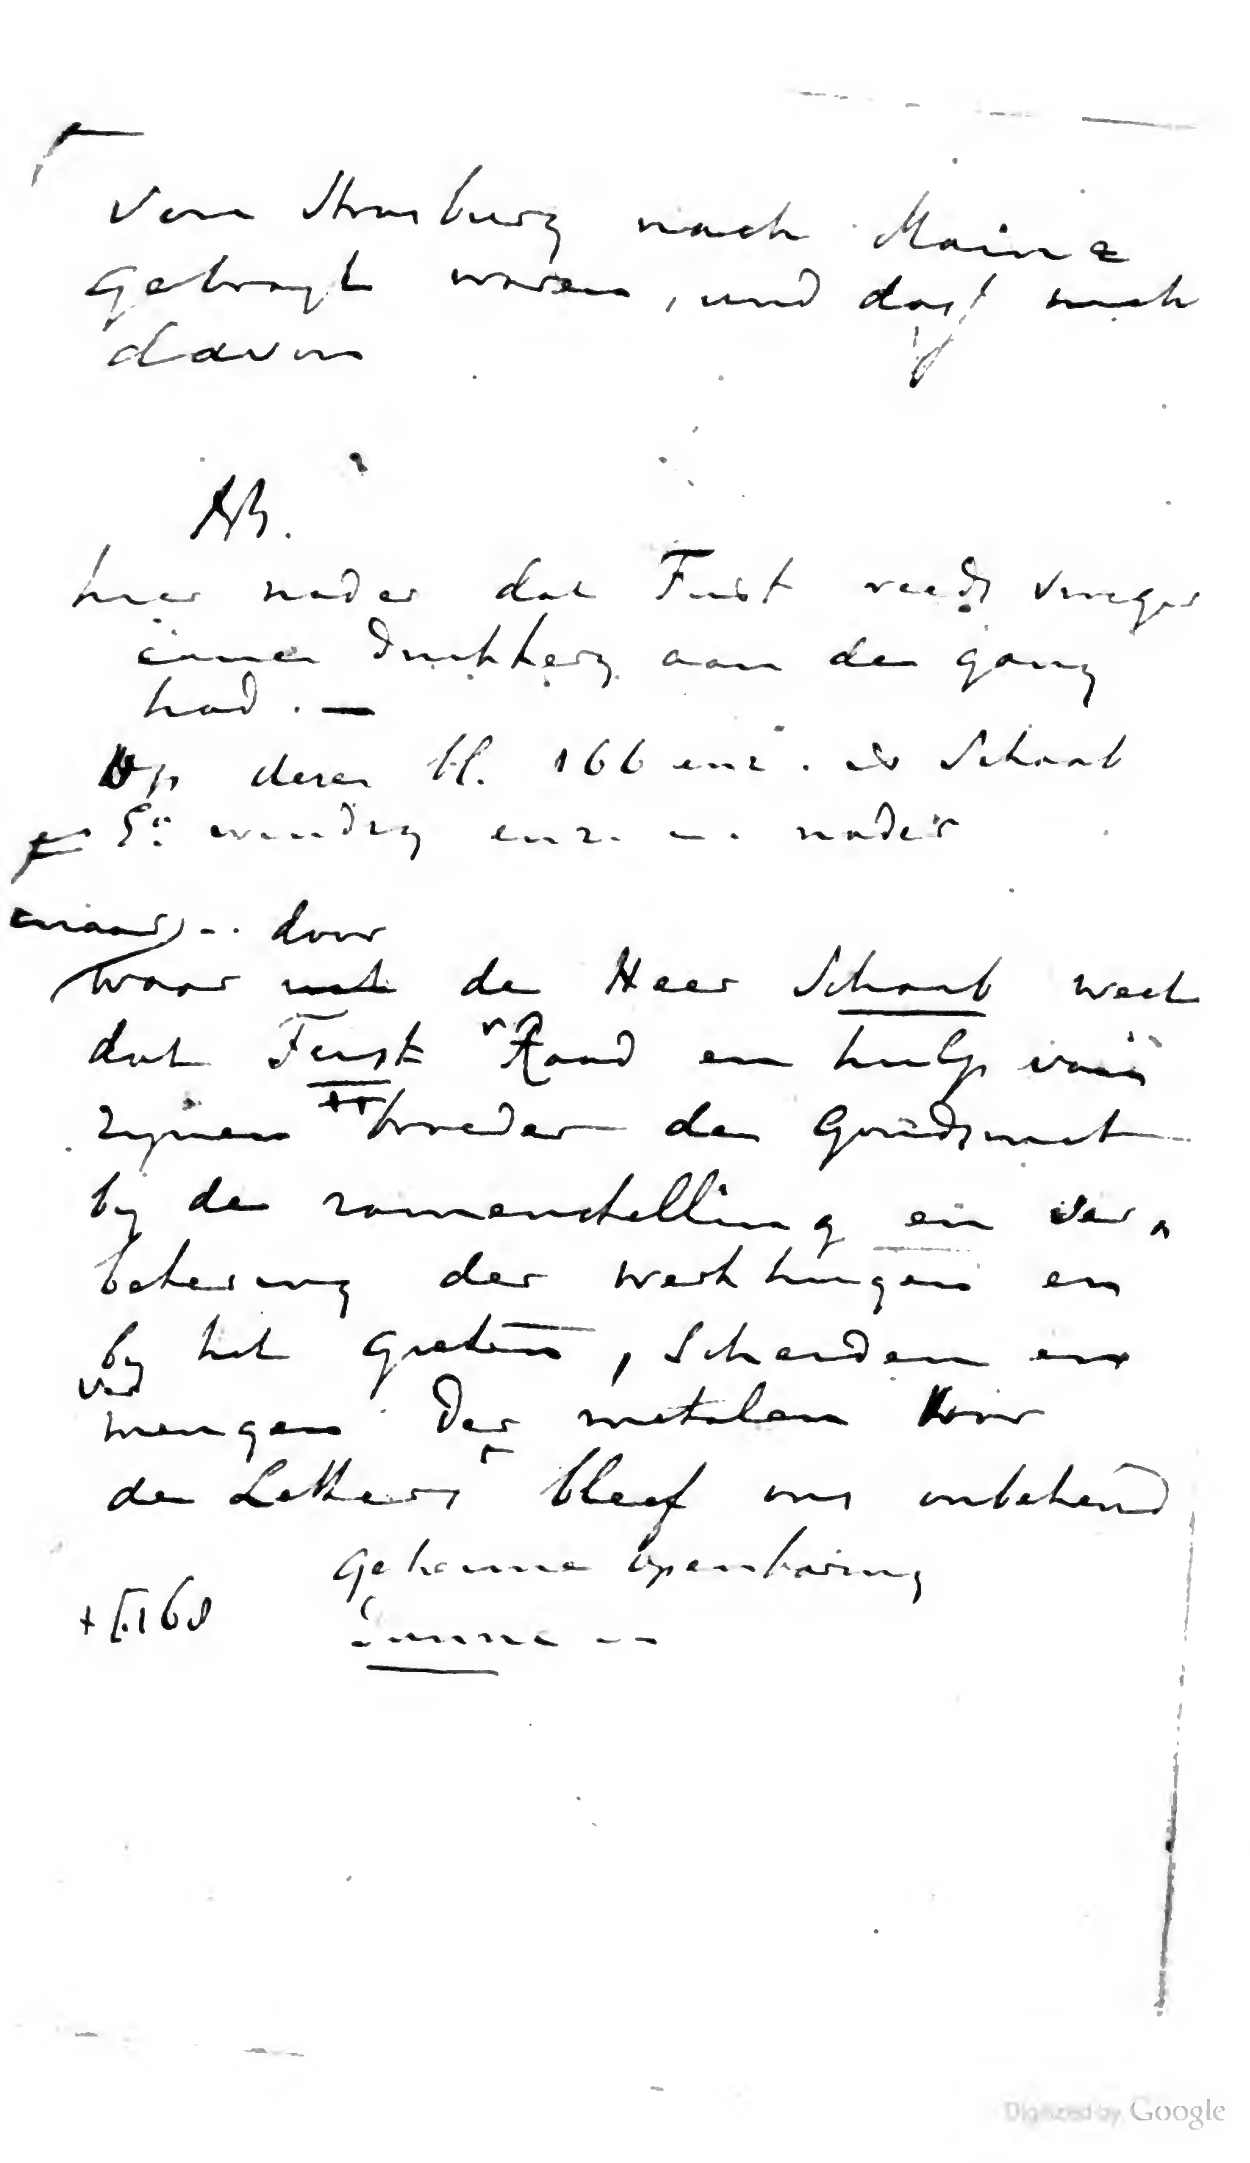 von Strasburg nach Mainz
gebragt waren, und dass nach
davon
NB.
hier nader dat Fust reeds vroeger
eener Drukkery aan de gang
had. —
Op dezen bl. 166 enz. Schaab
enz. nader
maar) -- door
waar uit de Heer Schaab weet
dat Fust Raad en hulp van
zynen broeder den Goudsmet
by de zamenstelling en ver
betering der werktuigen en
by het gieten, Scheiden en
ver
mengen der metalen voor
de Letters bleef ons onbekend
geheime openbaring
+ 168
Digitized by Google